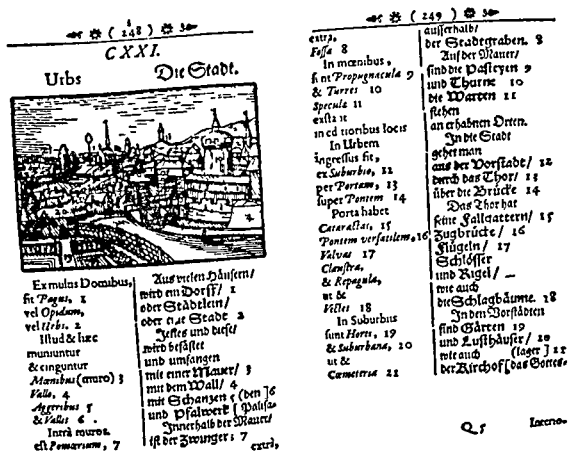 ( 248 )
CXXI.
Urbs
Die Stadt.
Ex multis Domibus,
fit Pagus, 1
vel Opidum,
vel Urbs. 2
Istud & hæc
muniuntur
& cinguntur
Mœnibus (muro) 3
Vallo, 4
Aggeribus 5
& Vallis 6 .
Intrà muros
est Pomœrium, 7
Aus vielen Häusern/
wird ein Dorff/ 1
oder Städtlein/
oder eine Stadt 2
Jenes und dieses
wird befästet
und umfangen
mit einer Mauer/ 3
mit dem Wall/ 4
mit Schanzen 5 (den ]6
und Pfalwerk [ Palisa-
Innerhalb der Mauer/
ist der Zwinger; 7
extrà,
( 249 )
extrà,
Fossa 8
In mœnibus,
sunt Propugnacula 9
& Turres 10
Specula 11
exstant
in editioribus locis
In Urbem
ingressus fit,
ex Suburbio, 12
per Portam, 13
super Pontem 14
Porta habet
Cataractas, 15
Pontem versatilem, 16
Valvas 17
Claustra,
& Repagula,
ut &
Vectes 18
In Suburbiis
sunt Horti, 19
& Suburbana, 20
ut &
Cœmeteria 21
ausserhalb/
der Stadtgraben. 8
Auf der Mauer/
sind die Pasteyen 9
und Thürne 10
die Warten 11
stehen
an erhabnen Orten.
In die Stadt
gehet man
aus der Vorstadt/ 12
durch das Thor/ 13
über die Brücke 14
Das Thor hat
seine Fallgattern/ 15
Zugbrücke/ 16
Flügeln/ 17
Schlösser
und Rigel/
wie auch
die Schlagbäume. 18
In den Vorstädten
sind Gärten 19
und Lusthäuser/ 20
wie auch (lager ] 21
der Kirchof [das Gottes-
Q 5
Intero-